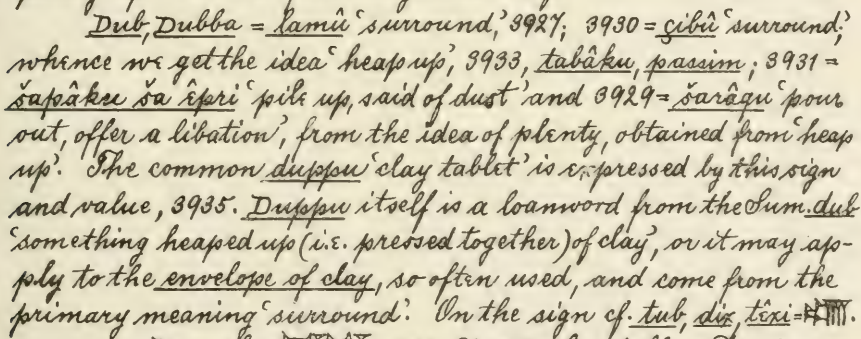 Dub, Dubba = lamû ‘surround,’ 3927; 3930 = çibû ‘surround;’
whence we get the idea ‘heap up’, 3933, tabâku, passim; 3931 =
šapâku ša êpri ‘pile up, said of dust’ and 3929 = šarâqu ‘pour
out, offer a libation’, from the idea of plenty, obtained from ‘heap
up’. The common duppu ‘clay tablet’ is expressed by this sign
and value, 3935. Duppu itself is a loanword from the Sum. dub
‘something heaped up (i.e. pressed together) of clay’, or it may ap-
ply to the envelope of clay, so often used, and come from the
primary meaning ‘surround’. On the sign cf. tub, dix, têxi =